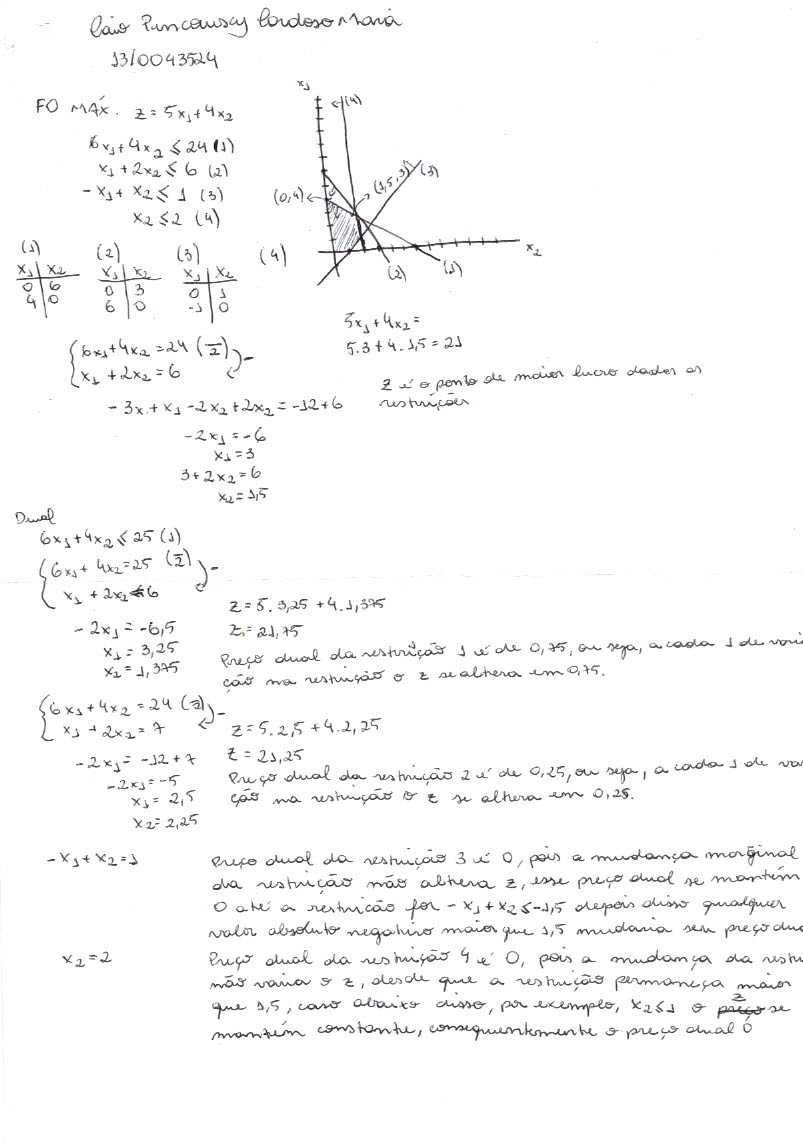 Caio Cardoso Maria
13/0043524
FO MÁX. Z = 5x₁+4x₂
6x₁+4x₂ ≤ 24 (1)
x₁ + 2x₂ ≤ 6 (2)
-x₁ + x₂ ≤ 1 (3)
x₂ ≤ 2 (4)
(1)
x₁ | x₂
0 | 6
4 | 0
(2)
x₁ | x₂
0 | 3
6 | 0
(3)
x₁ | x₂
0 | 1
-1 | 0
(4)
x₁
(4)
(0,4)
(1,5,3)
(3)
x₂
(2)
(1)
5x₁+4x₂ =
5.3+4.1,5 = 21
Z é o ponto de maior lucro dados as
restrições
6x₁+4x₂ = 24 (÷2)
x₁ + 2x₂ = 6
-3x₁+x₁ -2x₂+2x₂ = -12+6
-2x₁ = -6
x₁ = 3
3+2x₂ = 6
x₂ = 1,5
Dual
6x₁+4x₂ ≤ 25 (1)
6x₁+ 4x₂ = 25 (÷2)
x₁ + 2x₂ = 6
-2x₁ = -6,5
x₁ = 3,25
x₂ = 1,375
Z = 5.3,25 +4.1,375
Z = 21,75
Preço dual da restrição 1 é de 0,75, ou seja, a cada 1 de vari
ção na restrição o z se altera em 0,75.
6x₁+4x₂ = 24 (÷2)
x₁ + 2x₂ = 7
-2x₁ = -12+7
-2x₁ = -5
x₁ = 2,5
x₂ = 2,25
Z = 5.2,5 +4.2,25
Z = 21,25
Preço dual da restrição 2 é de 0,25, ou seja, a cada 1 de va
ção na restrição o z se altera em 0,25.
-x₁+x₂ = 1
Preço dual da restrição 3 é 0, pois a mudança marginal
da restrição não altera z, esse preço dual se mantém
0 até a restricão for -x₁+x₂ ≤ -1,5 depois disso qualquer
valor absoluto negativo maior que 1,5 mudaria seu preço dua
x₂ = 2
Preço dual da restrição 4 é 0, pois a mudança da restri
não varia o z, desde que a restrição permaneça maior
que 1,5, caso abaixo disso, por exemplo, x₂ ≤ 1 o z se
mantém constante, consequentemente o preço dual 0